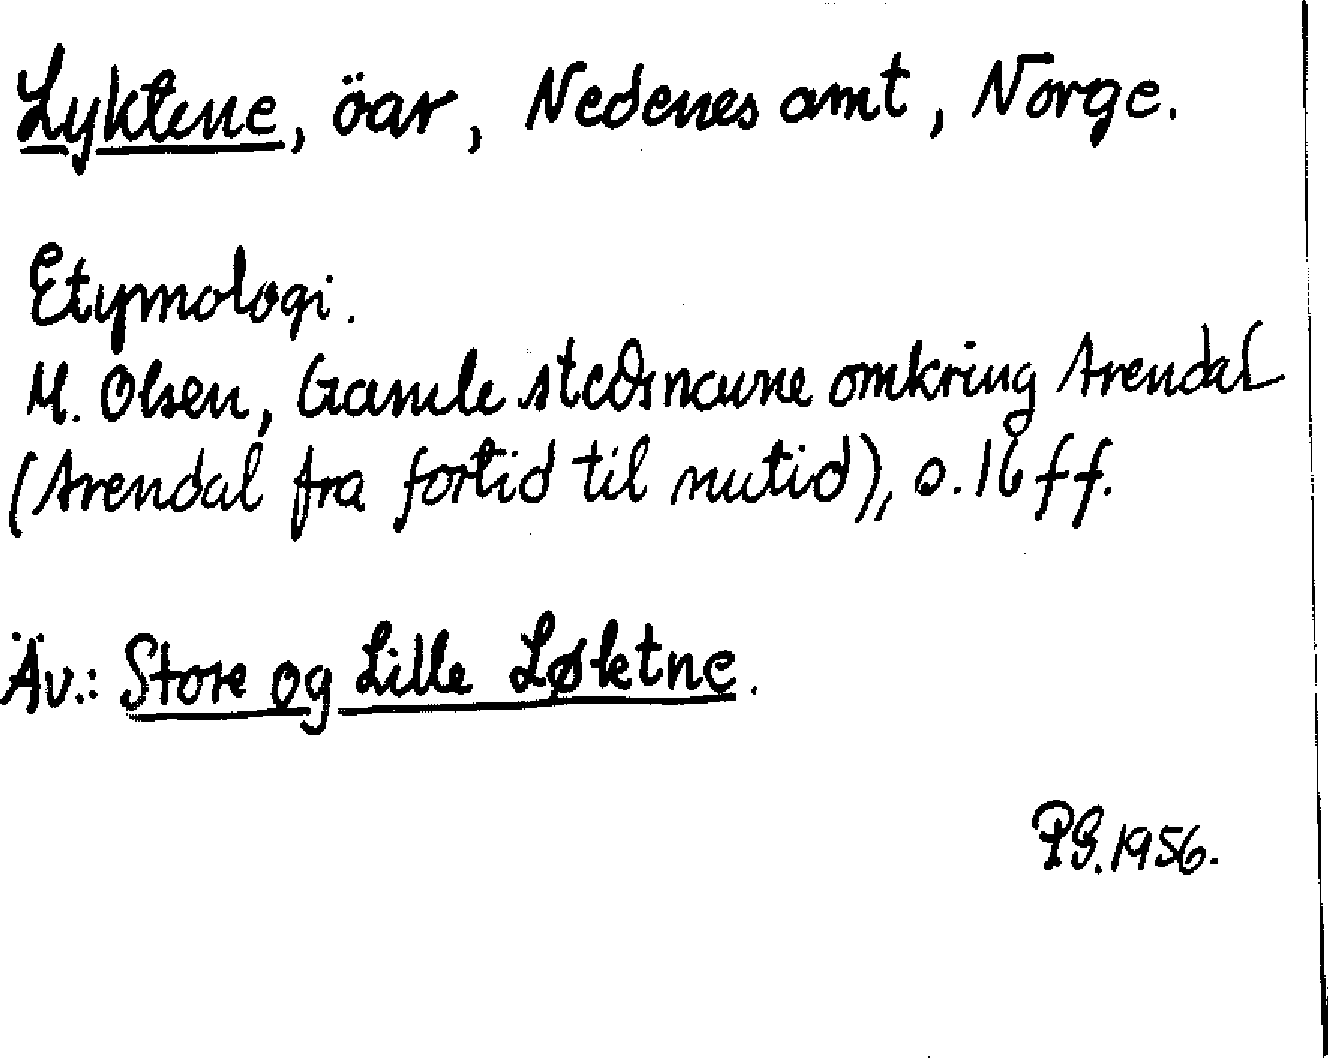 Lyktene, öar, Nedenes amt, Norge.
Etymologi.
M. Olsen, Gamle stedsnavne omkring Arendal
(Arendal fra fortid til nutid), s. 16 ff.
Äv.: Store og Lille Løktne.
PG. 1956.